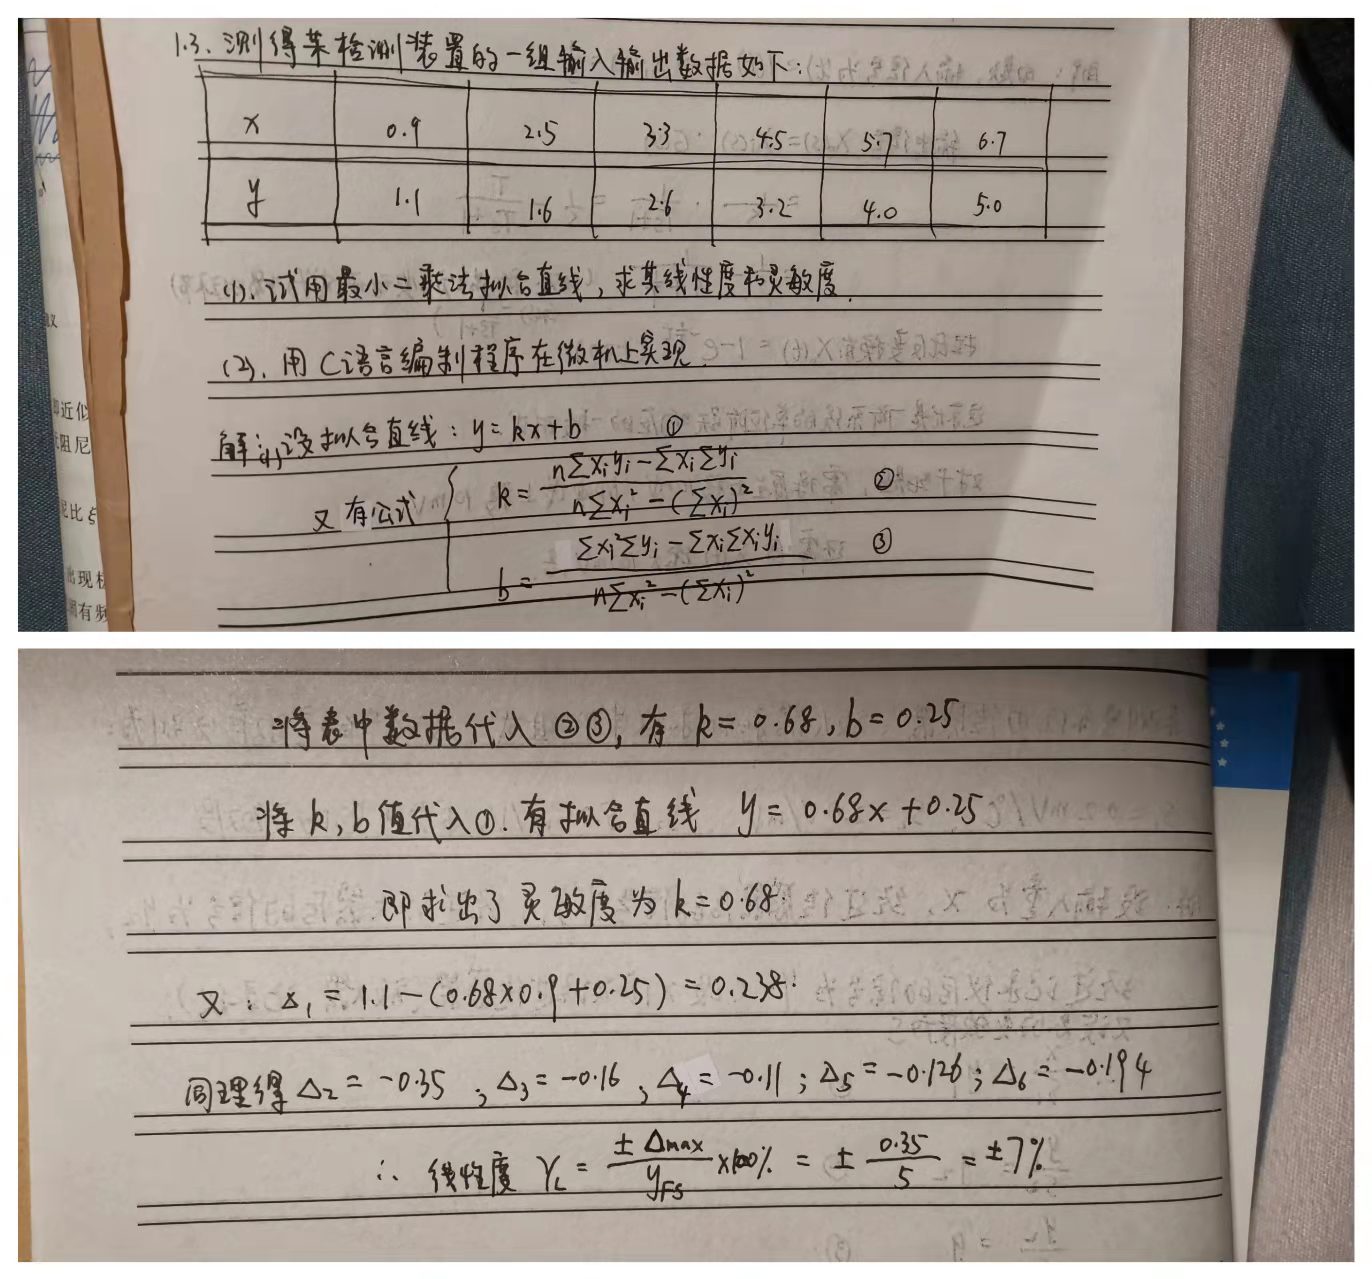 1.3. 测得某检测装置的一组输入输出数据如下:
x 0.9 2.5 3.3 4.5 5.7 6.7
y 1.1 1.6 2.6 3.2 4.0 5.0
(1). 试用最小二乘法拟合直线, 求其线性度和灵敏度.
(2). 用C语言编制程序在微机上实现.
解: (1)设拟合直线: y=kx+b ①
又有公式 { k= (n∑xᵢyᵢ-∑xᵢ∑yᵢ)/(n∑xᵢ²-(∑xᵢ)²) ②
b= (∑xᵢ²∑yᵢ-∑xᵢ∑xᵢyᵢ)/(n∑xᵢ²-(∑xᵢ)²) ③
即近似
阻尼
尼比ξ
出现
有频
将表中数据代入②③, 有 k=0.68, b=0.25
将k,b值代入①. 有拟合直线 y=0.68x+0.25
即求出了灵敏度为k=0.68.
又: Δ₁=1.1-(0.68×0.9+0.25)=0.238.
同理得Δ₂=-0.35; Δ₃=-0.16; Δ₄=-0.11; Δ₅=-0.126; Δ₆=-0.194
∴ 线性度 γL = ±Δmax/yFS ×100% = ± 0.35/5 = ±7%